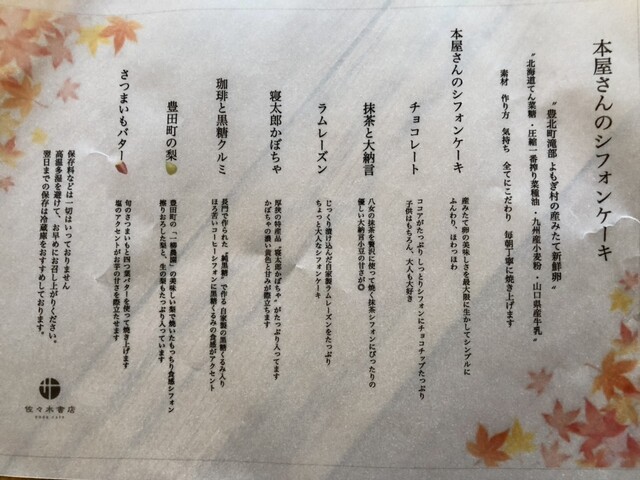 本屋さんのシフォンケーキ
〝豊北町滝部 よもぎ村の産みたて新鮮卵〟
〝北海道てん菜糖・圧縮一番搾り菜種油・九州産小麦粉・山口県産牛乳〟
素材 作り方 気持ち 全てにこだわり 毎朝丁寧に焼き上げます
本屋さんのシフォンケーキ
産みたて卵の美味しさを最大限に生かしてシンプルに
ふんわり、ほわっほわ
チョコレート
ココアがたっぷりしっとりシフォンにチョコチップたっぷり
子供はもちろん、大人も大好き
抹茶と大納言
八女の抹茶を贅沢に使って焼く抹茶シフォンにぴったりの
優しい大納言小豆の甘さが◎
ラムレーズン
じっくり漬け込んだ自家製ラムレーズンをたっぷり
ちょっと大人なシフォンケーキ
寝太郎かぼちゃ
厚狭の特産品〝寝太郎かぼちゃ〟がたっぷり入ってます
かぼちゃの濃い黄色と甘みが際立ちます
珈琲と黒糖クルミ
長門で作られた〝純黒糖〟で作る自家製の黒糖くるみ入り
ほろ苦いコーヒーシフォンに黒糖くるみの食感がアクセント
豊田町の梨
豊田町の〝一柳農園〟の美味しい梨で焼いたもっちり食感シフォン
擦りおろした梨と、生の梨もたっぷり入っています
さつまいもバター
旬のさつまいもと四つ葉バターを使って焼き上げます
塩のアクセントがお芋の甘さを際立たせます
保存料などは一切はいっておりません
高温多湿を避けて、お早めにお召し上がりください。
翌日までの保存は冷蔵庫をおすすめしております。
佐々木書店